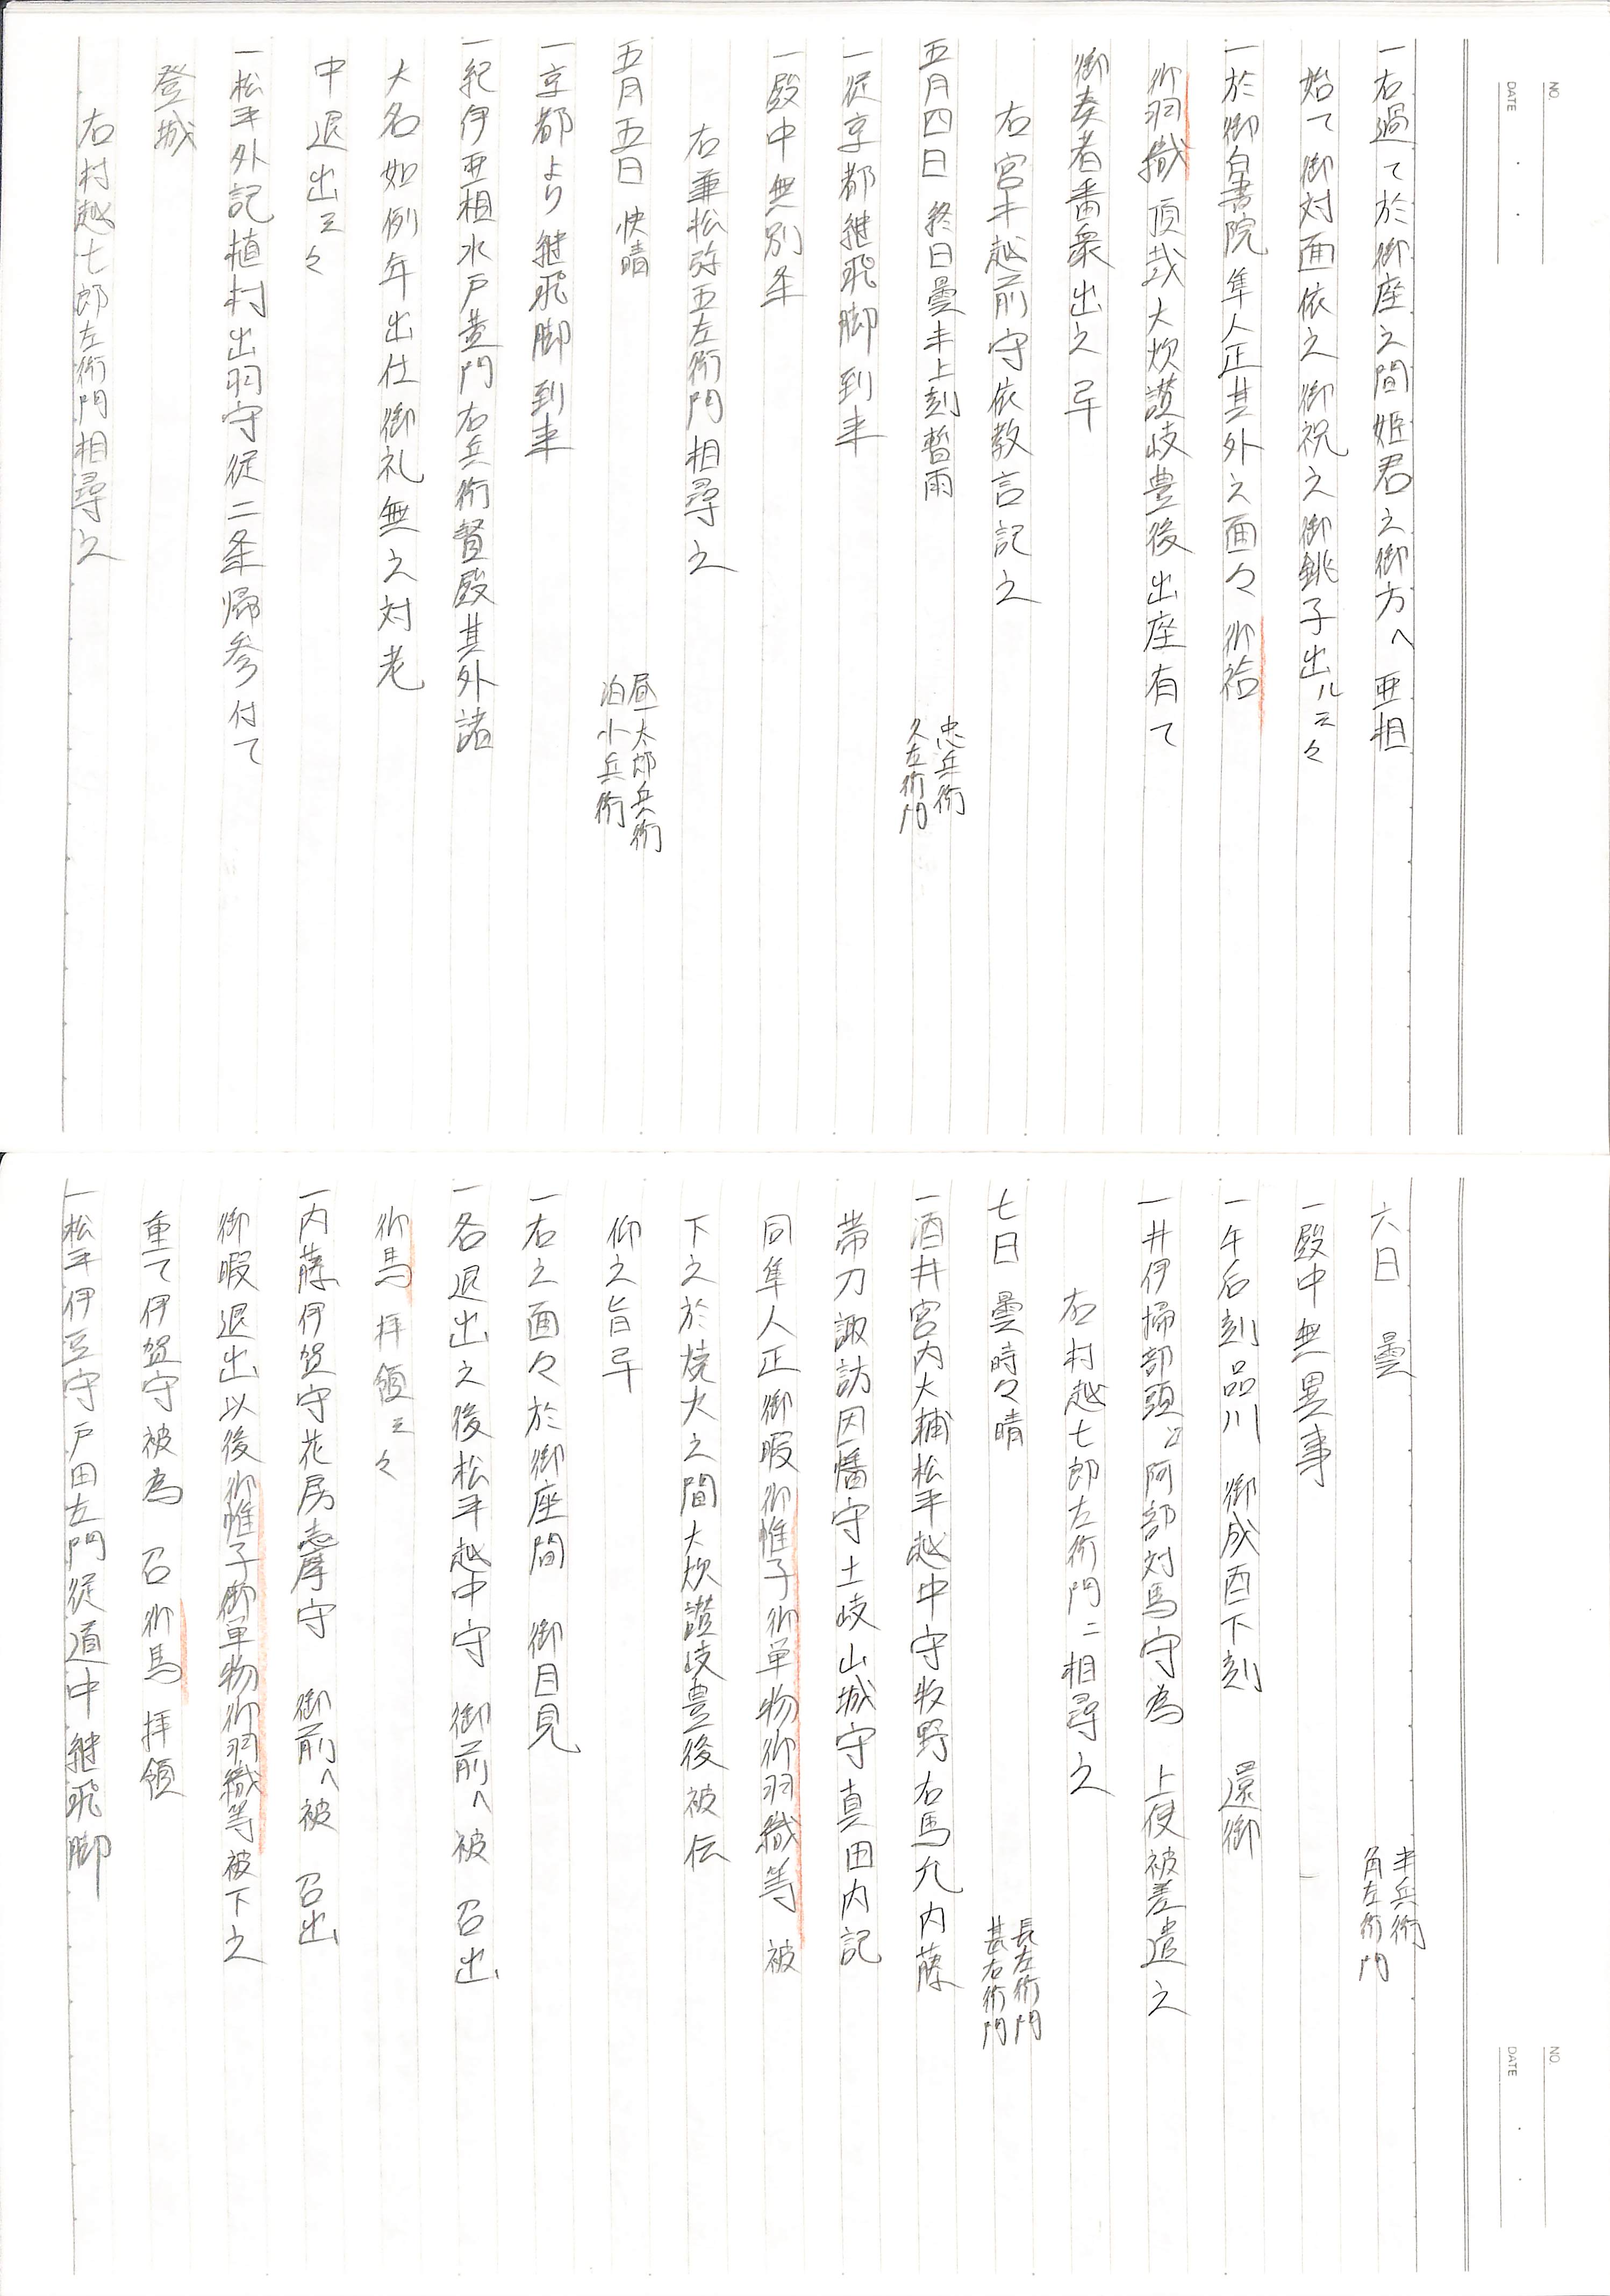 NO.
DATE
一右過て於御座之間姫君之御方へ 亜相
始て御対面依之御祝之御銚子出ル云々
一於御白書院隼人正其外之面々 御袷
御羽織 頂戴大炊讃岐豊後出座有て
御奏者番衆出之畢
右宮半越前守依教言記之
五月四日 終日曇未上刻暫雨
忠兵衛
久左衛門
一従京都継飛脚到来
一殿中無別条
右兼松弥五左衛門相尋之
五月五日 快晴
昼太郎兵衛
泊小兵衛
一京都より継飛脚到来
一紀伊亜相水戸黄門右兵衛督殿其外諸
大名如例年出仕御礼無之対老
中退出云々
一松平外記植村出羽守従二条帰参付て
登城
右村越七郎左衛門相尋之
NO.
DATE
六日 曇
半兵衛
角左衛門
一殿中無異事
一午后刻品川 御成酉下刻 還御
一井伊掃部頭江阿部対馬守為 上使被差遣之
右村越七郎左衛門ニ相尋之
七日 曇時々晴
長左衛門
甚右衛門
一酒井宮内大輔松平越中守牧野右馬允内藤
帯刀諏訪因幡守土岐山城守真田内記
同隼人正御暇御帷子御単物御羽織等 被
下之於焼火之間大炊讃岐豊後被伝
仰之旨畢
一右之面々於御座間 御目見
一各退出之後松平越中守 御前へ被 召出
御馬 拝領云々
一内藤伊賀守花房志摩守 御前へ被 召出
御暇退出以後御帷子御単物御羽織等被下之
重て伊賀守被為 召御馬 拝領
一松平伊豆守戸田左門従道中継飛脚